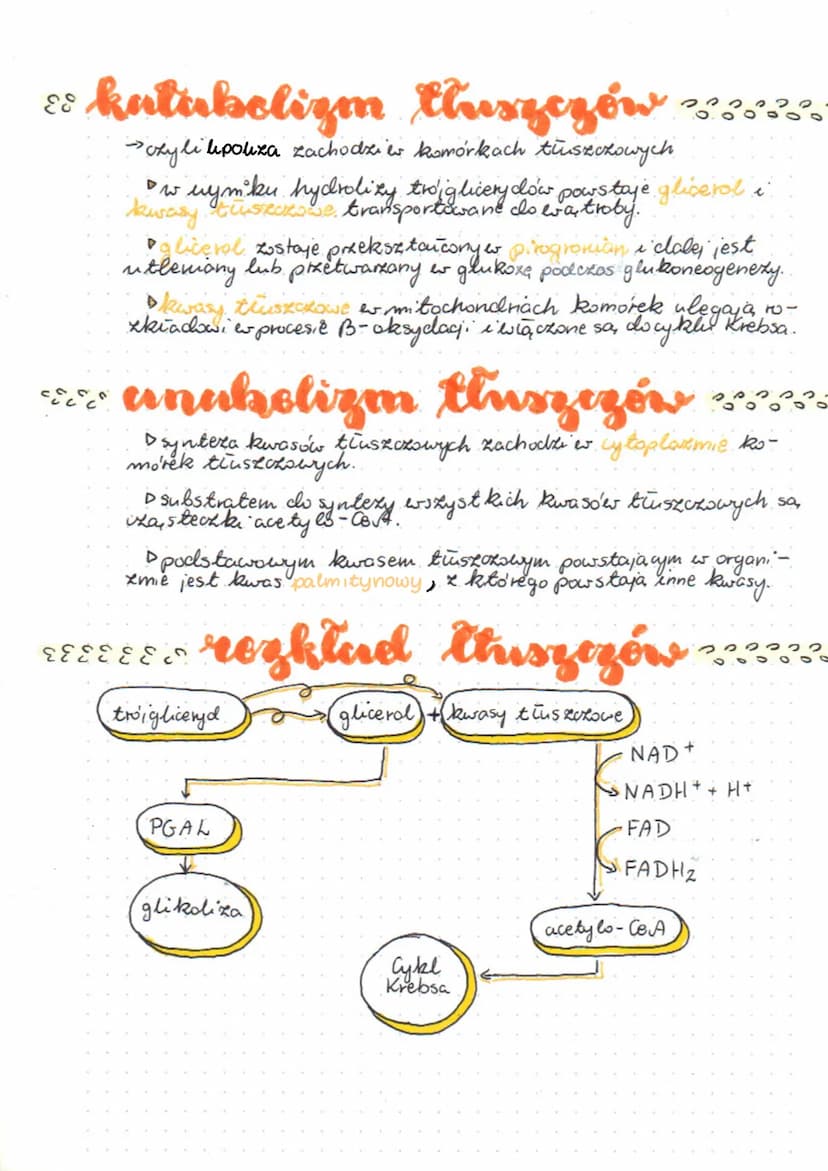 katabolizm tłuszczów
→ czyli lipoliza zachodzi w komórkach tłuszczowych
▷ w wyniku hydrolizy trójglicerydów powstaje glicerol i
kwasy tłuszczowe transportowane do wątroby.
▷ glicerol zostaje przekształcony w pirogronian i dalej jest
utleniany lub przetwarzany w glukozę podczas glukoneogenezy.
▷ kwasy tłuszczowe w mitochondriach komórek ulegają ro-
zkładowi w procesie β-oksydacji i włączone są do cyklu Krebsa.
anabolizm tłuszczów
▷ synteza kwasów tłuszczowych zachodzi w cytoplazmie ko-
mórek tłuszczowych.
▷ substratem do syntezy wszystkich kwasów tłuszczowych są
cząsteczki acetylo-CoA.
▷ podstawowym kwasem tłuszczowym powstającym w organi-
zmie jest kwas palmitynowy, z którego powstają inne kwasy.
rozkład tłuszczów
trójgliceryd → glicerol + kwasy tłuszczowe
NAD⁺
NADH⁺ + H⁺
PGAL
FAD
FADH₂
glikoliza
acetylo-CoA
Cykl
Krebsa